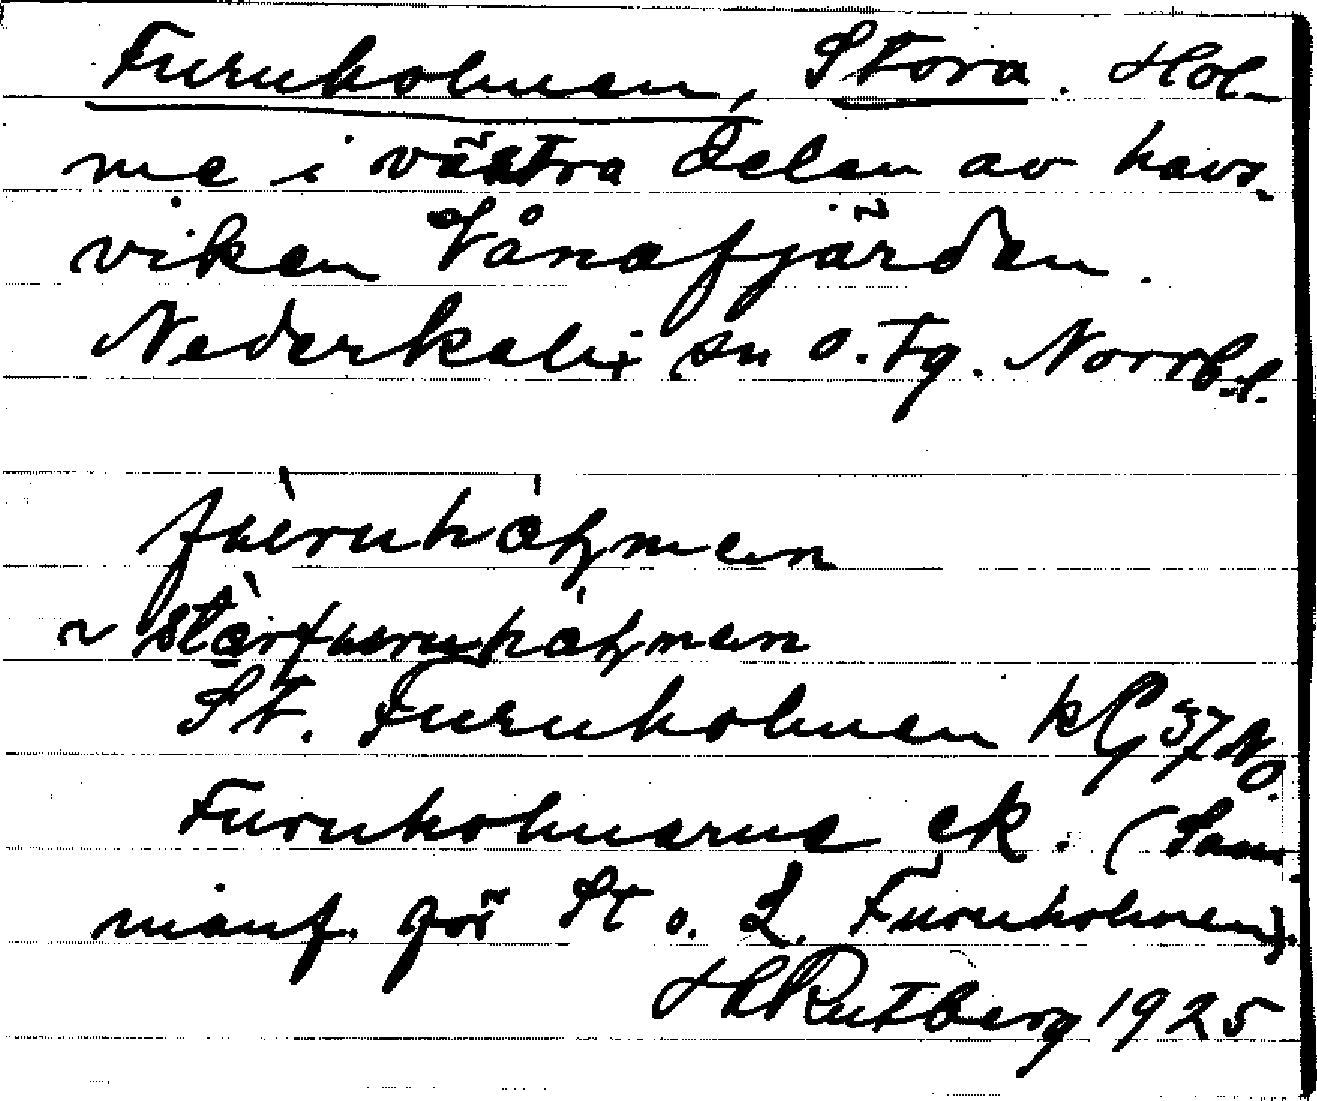 Furuholmen, Stora. Hol-
me i västra delen av havs-
viken Vånafjärden.
Nederkalix sn o. tg. Norrb.l.
fùruhȧłmen
~ stòrfuruhȧłmen
St. Furuholmen kG 37 NO.
Furuholmarne ek. (Sam-
manf. för St o. L. Furuholmen).
H Rutberg 1925